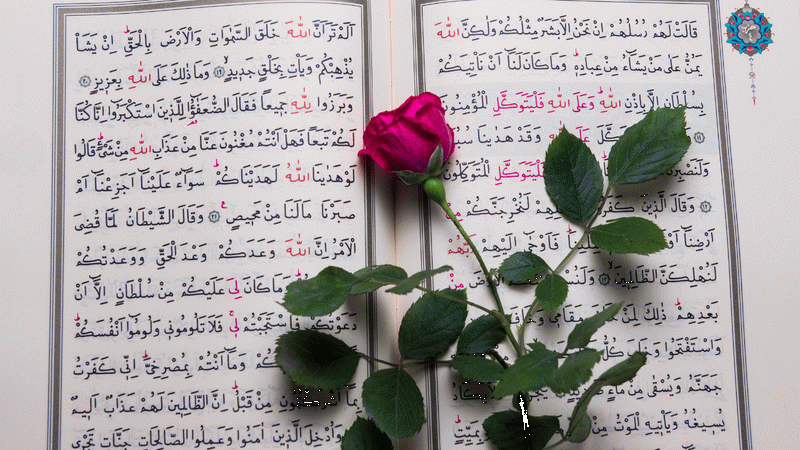 قَالَتْ لَهُمْ رُسُلُهُمْ اِنْ نَحْنُ اِلَّا بَشَرٌ مِثْلُكُمْ وَلٰكِنَّ اللّٰهَ
يَمُنُّ عَلٰى مَنْ يَشَٓاءُ مِنْ عِبَادِهٖۜ وَمَا كَانَ لَنَٓا اَنْ نَأْتِيَكُمْ
بِسُلْطَانٍ اِلَّا بِاِذْنِ اللّٰهِۜ وَعَلَى اللّٰهِ فَلْيَتَوَكَّلِ الْمُؤْمِنُونَ
عَلَى اللّٰهِ وَقَدْ هَدٰينَا
فَلْيَتَوَكَّلِ الْمُتَوَكِّلُونَ
﴿١٢﴾ وَقَالَ الَّذٖينَ لَنُخْرِجَنَّكُمْ مِنْ
اَرْضِنَٓا فَاَوْحٰٓى اِلَيْهِمْ رَبُّهُمْ
لَنُهْلِكَنَّ الظَّالِمٖينَ ﴿١٣﴾ الْاَرْضَ مِنْ
بَعْدِهِمْۜ ذٰلِكَ لِمَنْ مَقَامٖي
وَاسْتَفْتَحُوا وَخَابَ كُلُّ
جَهَنَّمُ وَيُسْقٰى مِنْ مَٓاءٍ
يُسٖيغُهُ وَيَأْتٖيهِ الْمَوْتُ مِنْ بِمَيِّتٍ
اَلَمْ تَرَ اَنَّ اللّٰهَ خَلَقَ السَّمٰوَاتِ وَالْاَرْضَ بِالْحَقِّۜ اِنْ يَشَأْ
يُذْهِبْكُمْ وَيَأْتِ بِخَلْقٍ جَدٖيدٍ ﴿١٩﴾ وَمَا ذٰلِكَ عَلَى اللّٰهِ بِعَزٖيزٍ ﴿٢٠﴾
وَبَرَزُوا لِلّٰهِ جَمٖيعاً فَقَالَ الضُّعَفٰٓؤُا لِلَّذٖينَ اسْتَكْبَرُٓوا اِنَّا كُنَّا
لَكُمْ تَبَعاً فَهَلْ اَنْتُمْ مُغْنُونَ عَنَّا مِنْ عَذَابِ اللّٰهِ مِنْ شَيْءٍۜ قَالُوا
لَوْ هَدٰينَا اللّٰهُ لَهَدَيْنَاكُمْۜ سَوَٓاءٌ عَلَيْنَٓا اَجَزِعْنَٓا اَمْ
صَبَرْنَا مَا لَنَا مِنْ مَحٖيصٍ ﴿٢١﴾ وَقَالَ الشَّيْطَانُ لَمَّا قُضِيَ
الْاَمْرُ اِنَّ اللّٰهَ وَعَدَكُمْ وَعْدَ الْحَقِّ وَوَعَدْتُكُمْ
وَمَا كَانَ لِيَ عَلَيْكُمْ مِنْ سُلْطَانٍ اِلَّٓا اَنْ
دَعَوْتُكُمْ فَاسْتَجَبْتُمْ لٖيۚ فَلَا تَلُومُونٖي وَلُومُٓوا اَنْفُسَكُمْۜ
وَمَٓا اَنْتُمْ بِمُصْرِخِيَّۜ اِنّٖي كَفَرْتُ
بِمَٓا مِنْ قَبْلُۜ اِنَّ الظَّالِمٖينَ لَهُمْ عَذَابٌ اَلٖيمٌ
وَاُدْخِلَ الَّذٖينَ اٰمَنُوا وَعَمِلُوا الصَّالِحَاتِ جَنَّاتٍ تَجْرٖي